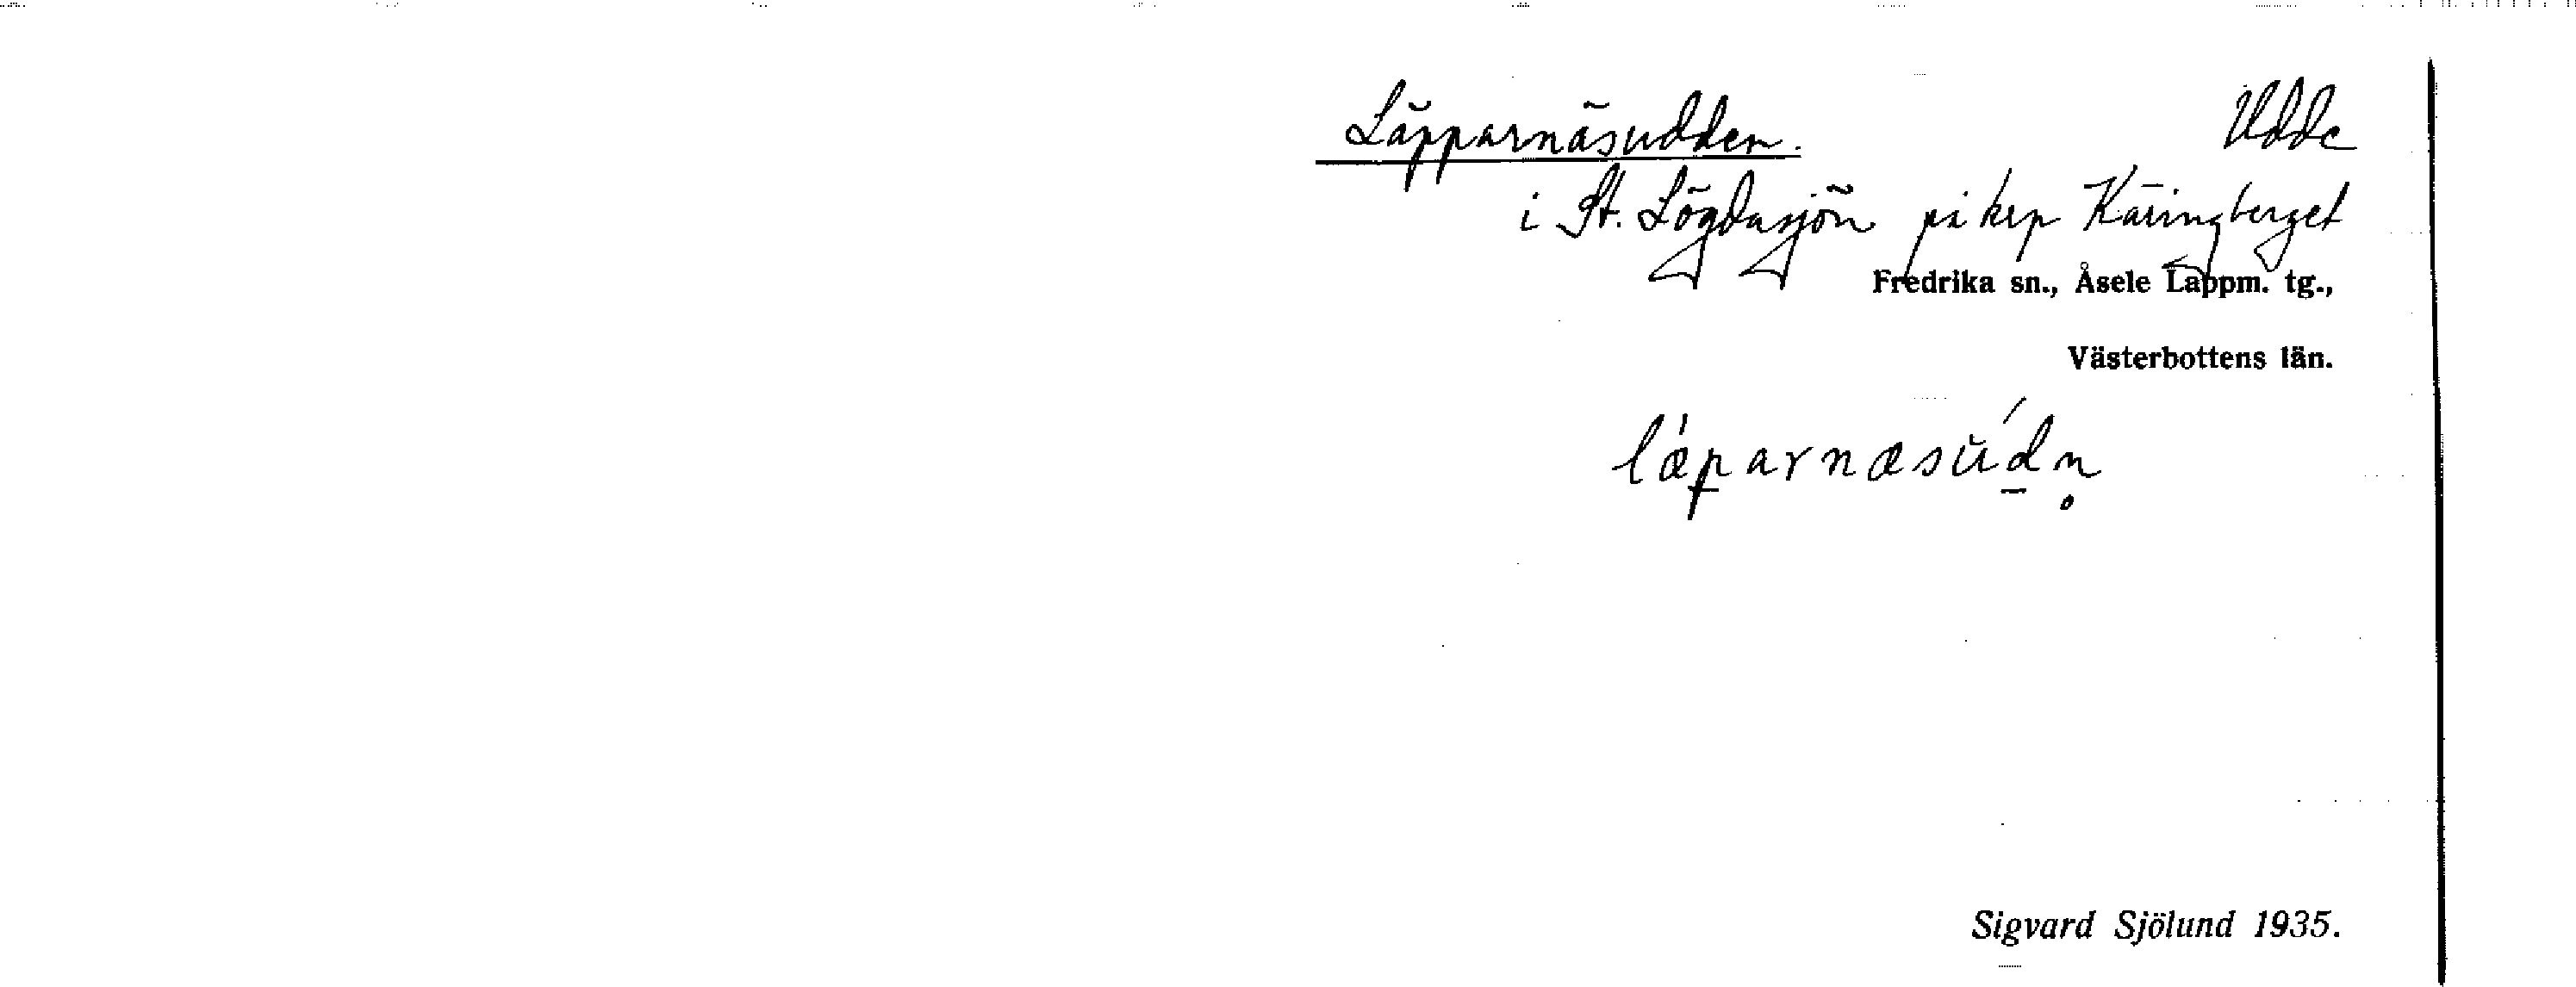 Läpparnäsudden. Udde
i St. Lögdasjön på krp Käringberget
Fredrika sn., Åsele Lappm. tg.,
Västerbottens län.
lǽparnæsŭ́dn̥
Sigvard Sjölund 1935.